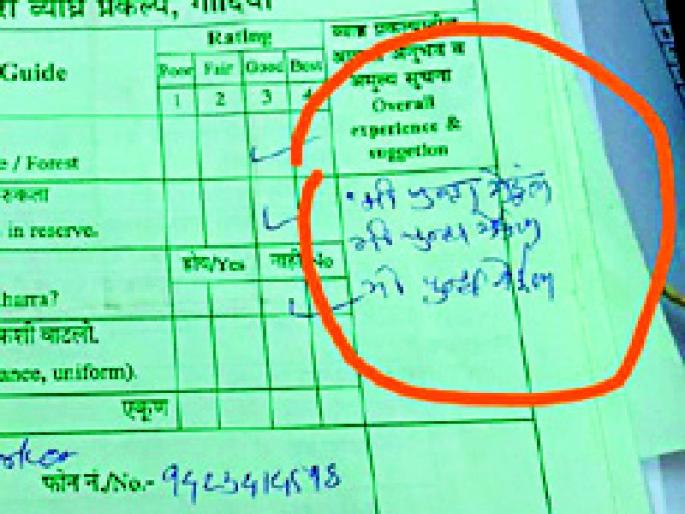 व्याघ्र प्रकल्प, गोंदिया
Rating
Guide
Poor Fair Good Best
1 2 3 4
व्याघ्र प्रकल्पातील
अनुभव व
अमूल्य सूचना
Overall
experience &
suggetion
e / Forest
in reserve.
होय/Yes नाही/No
harra?
कशी वाटली.
ance, uniform).
एकूण
मी पुन्हा येईल
मी पुन्हा येईल
मी पुन्हा येईल
फोन नं./No.-